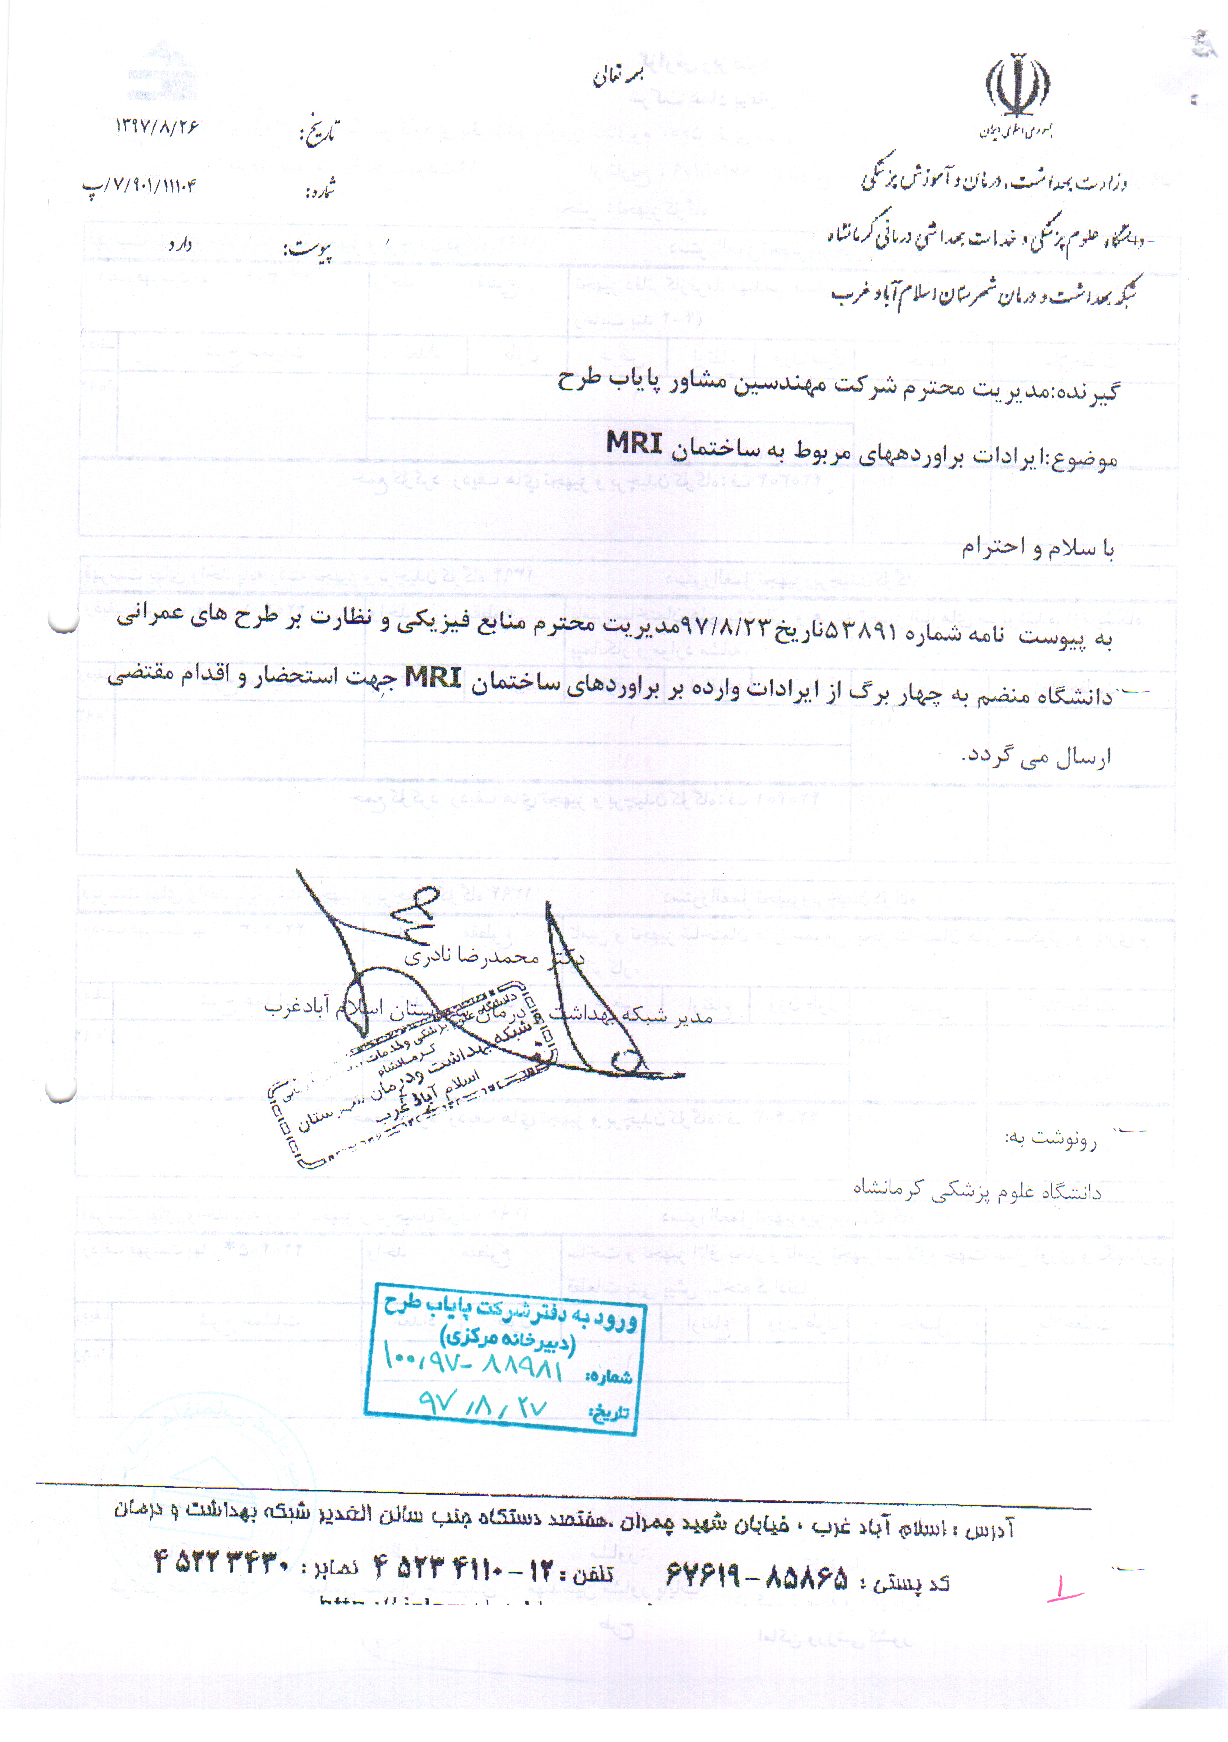 بسمه تعالی
جمهوری اسلامی ایران
وزارت بهداشت، درمان و آموزش پزشکی
دانشگاه علوم پزشکی و خدمات بهداشتی درمانی کرمانشاه
شبکه بهداشت و درمان شهرستان اسلام آباد غرب
تاریخ: ۱۳۹۷/۸/۲۶
شماره: ۷/۹۰۱/۱۱۱۰۴/پ
پیوست: دارد
گیرنده:مدیریت محترم شرکت مهندسین مشاور پایاب طرح
موضوع:ایرادات براوردههای مربوط به ساختمان MRI
با سلام و احترام
به پیوست نامه شماره ۵۳۸۹۱تاریخ۹۷/۸/۲۳مدیریت محترم منابع فیزیکی و نظارت بر طرح های عمرانی
دانشگاه منضم به چهار برگ از ایرادات وارده بر براوردهای ساختمان MRI جهت استحضار و اقدام مقتضی
ارسال می گردد.
دکتر محمدرضا نادری
مدیر شبکه بهداشت و درمان شهرستان اسلام آبادغرب
دانشگاه علوم پزشکی و خدمات
کرمانشاه
شبکه بهداشت ودرمان شهرستان
اسلام آباد غرب
رونوشت به:
دانشگاه علوم پزشکی کرمانشاه
ورود به دفتر شرکت پایاب طرح
(دبیرخانه مرکزی)
شماره: ۱۰۰٫۹۷-۸۸۹۸۱
تاریخ: ۹۷٫۸٫۲۷
آدرس : اسلام آباد غرب ، خیابان شهید چمران ،هفتصد دستگاه جنب سالن الغدیر شبکه بهداشت و درمان
کد پستی : ۸۵۸۶۵-۶۷۶۱۹ تلفن : ۱۲-۴۵۲۳۴۱۱۰ نمابر : ۴۵۲۲۳۴۳۰
۱